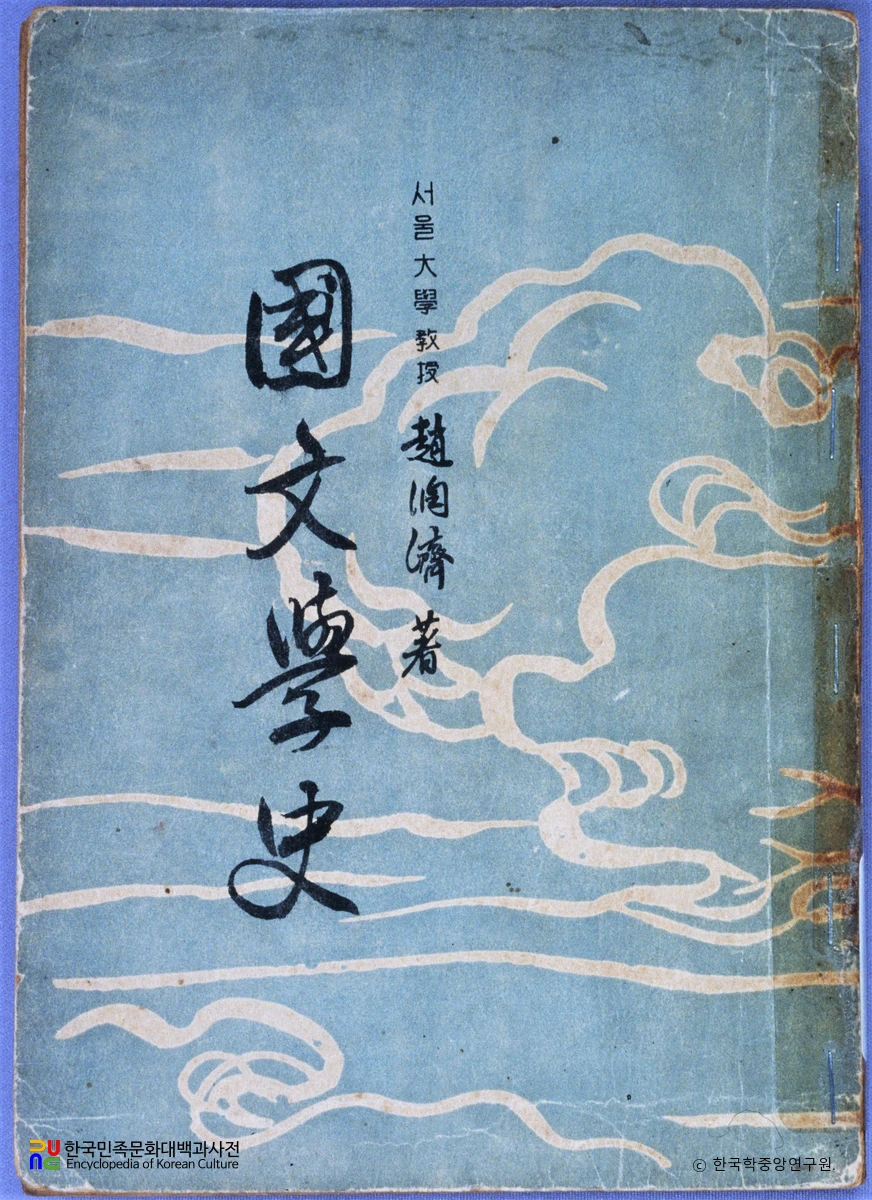 서울大學敎授 趙潤濟 著
國文學史
한국민족문화대백과사전
Encyclopedia of Korean Culture
ⓒ 한국학중앙연구원